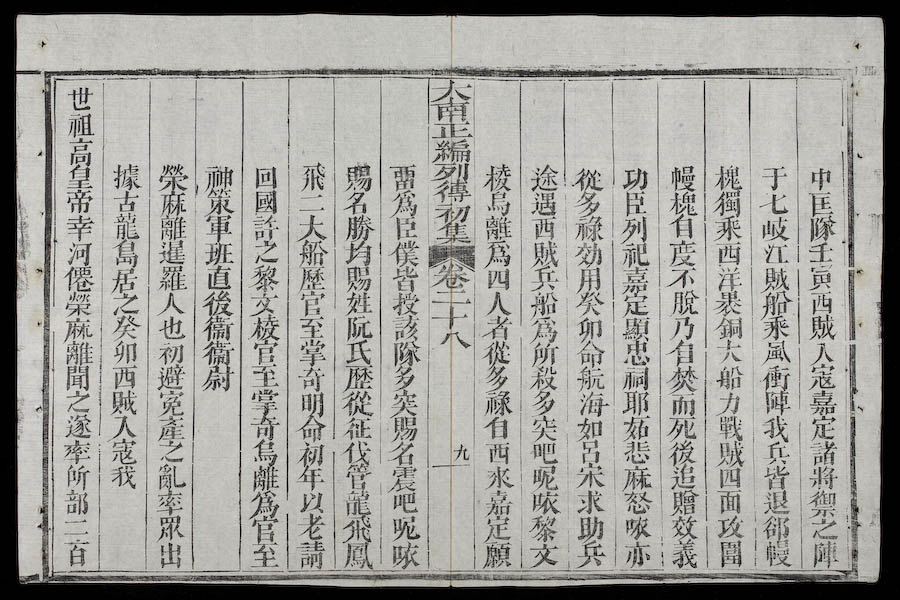 中匡隊壬寅西賊入寇嘉定諸將禦之陣
于七岐江賊船乘風衝陣我兵皆退郤幔
槐獨乘西洋裹銅大船力戰賊四面攻圍
幔槐自度不脫乃自焚而死後追贈效義
功臣列祀嘉定顯忠祠耶妬悲麻怒㕸亦
從多祿効用癸卯命航海如呂宋求助兵
途遇西賊兵船爲所殺多突吧呢㕸黎文
棱烏離爲四人者從多祿自西來嘉定願
大南正編列傳初集 卷二十八 九
畱爲臣僕皆授該隊多突賜名震吧呢㕸
賜名勝均賜姓阮氏歷從征伐管龍飛鳳
飛二大船歷官至掌奇明命初年以老請
回國許之黎文棱官至掌奇烏離爲官至
神策軍班直後衞衞尉
榮麻離暹羅人也初避寃產之亂率眾出
據古龍島居之癸卯西賊入寇我
世祖高皇帝幸河僊榮麻離聞之遂率所部二百